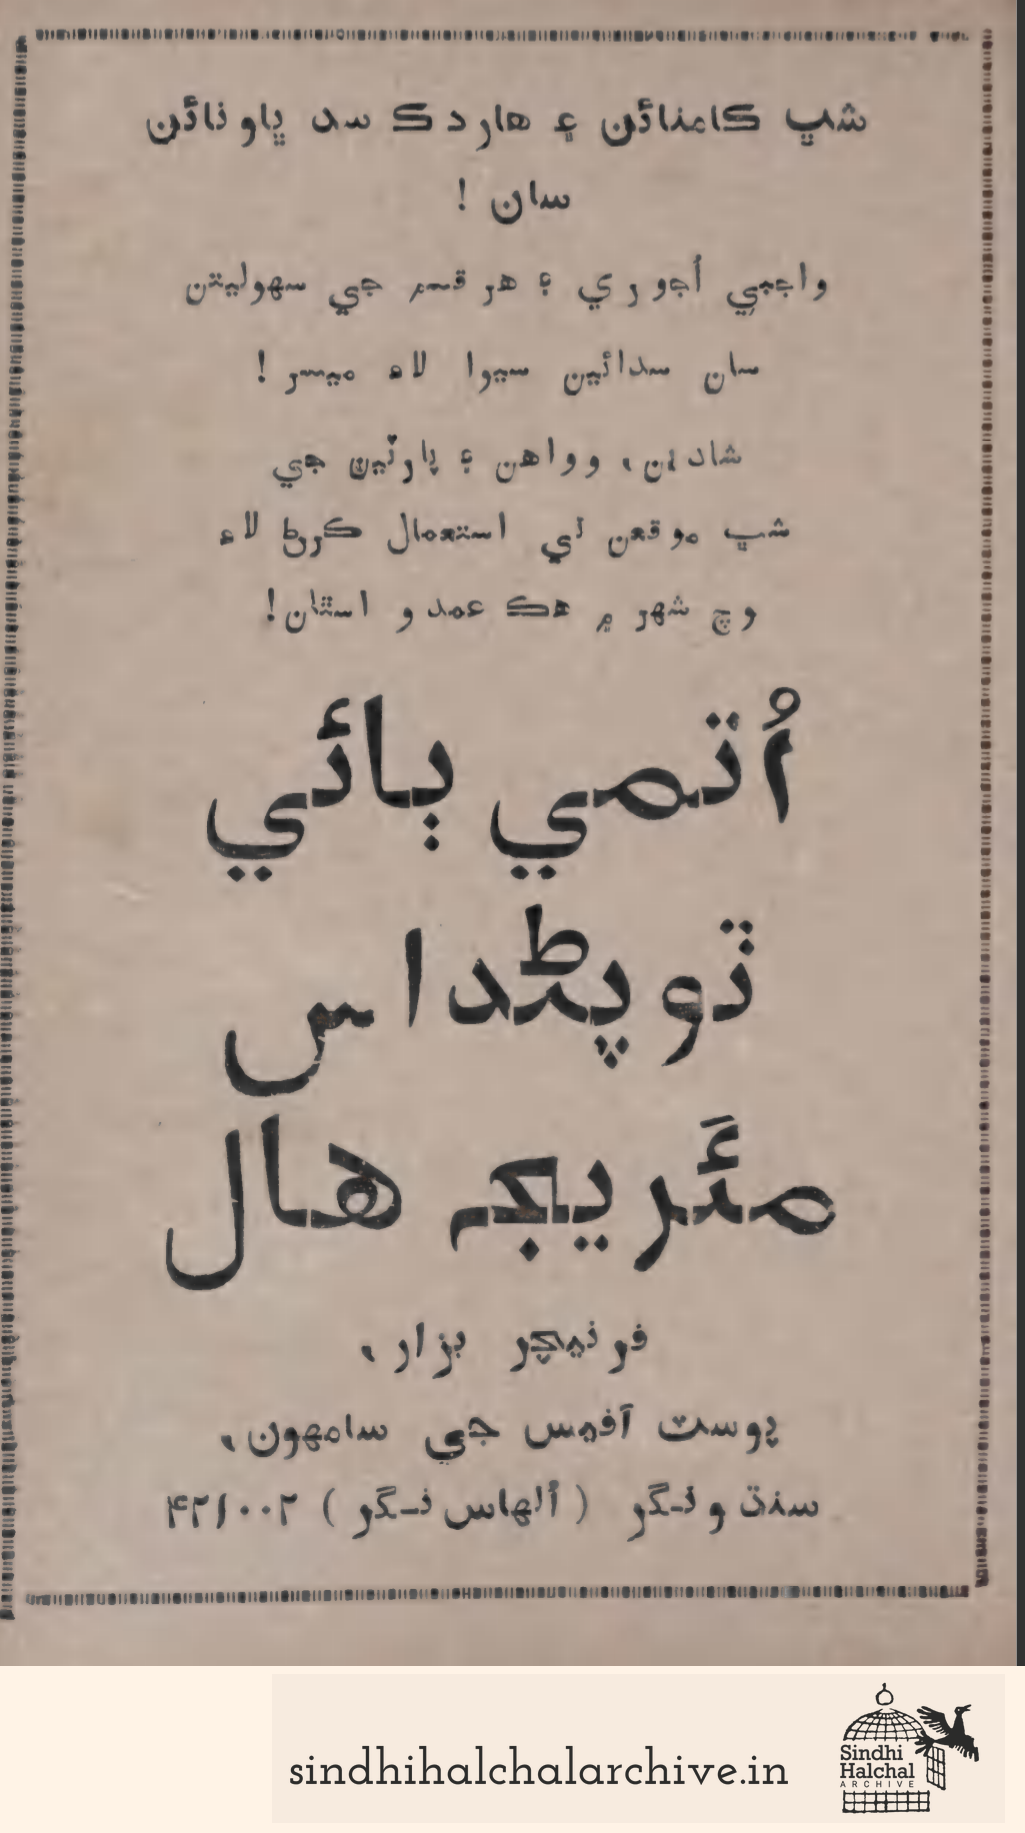 شڀ ڪامنائن ۽ هاردڪ سد ڀاونائن
سان !
واجبي اُجوري ۽ هر قسم جي سهوليتن
سان سدائين سيوا لاءِ ميسر !
شادين، وواهن ۽ پارٽين جي
شڀ موقعن تي استعمال ڪرڻ لاءِ
وچ شهر ۾ هڪ عمدو استان!
اُتمي ٻائي
ٿوپڻداس
مئَريج هال
فرنيچر بزار،
پوسٽ آفيس جي سامهون،
سنڌو نگر ( اُلهاس نگر ) ۴۲۱۰۰۲
sindhihalchalarchive.in
Sindhi
Halchal
ARCHIVE